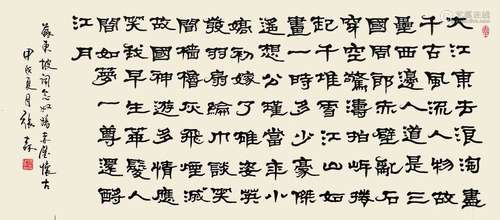 大江東去浪淘盡
千古風流人物故
壘西邊人道是三
國周郎赤壁亂石
穿空驚濤拍岸捲
起千堆雪江山如
畫一時多少豪傑
遥想公瑾當年小
喬初嫁了雄姿英
發羽扇綸巾談笑
間檣櫓灰飛煙滅
故國神遊多情應
笑我早生華髮人
間如夢一尊還酹
江月
蘇東坡詞念奴嬌赤壁懷古
甲戌夏月張森